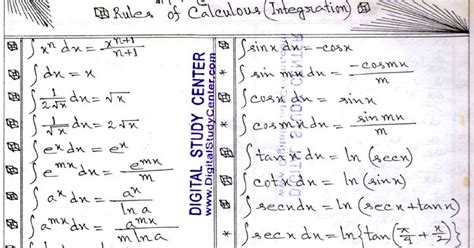 Rules of Calculous (Integration)
∫xⁿ dx = xⁿ⁺¹/n+1
∫dx = x
∫1/2√x dx = √x
∫1/√x dx = 2√x
∫eˣ dx = eˣ
∫eᵐˣ dx = eᵐˣ/m
∫aˣ dx = aˣ/ln a
∫aᵐˣ dx = aᵐˣ/m ln a
DIGITAL STUDY CENTER
www.DigitalStudyCenter.com
∫sinx dx = -cosx
* ∫sin mx dx = -cosmx/m
∫cosx dx = sinx
* ∫cosmx dx = sinmx/m
∫tanx dx = ln (secx)
∫cotx dx = ln (sinx)
∫secxdx = ln (secx+tanx)
* ∫secx dx = ln{tan(π/4 + x/2)}